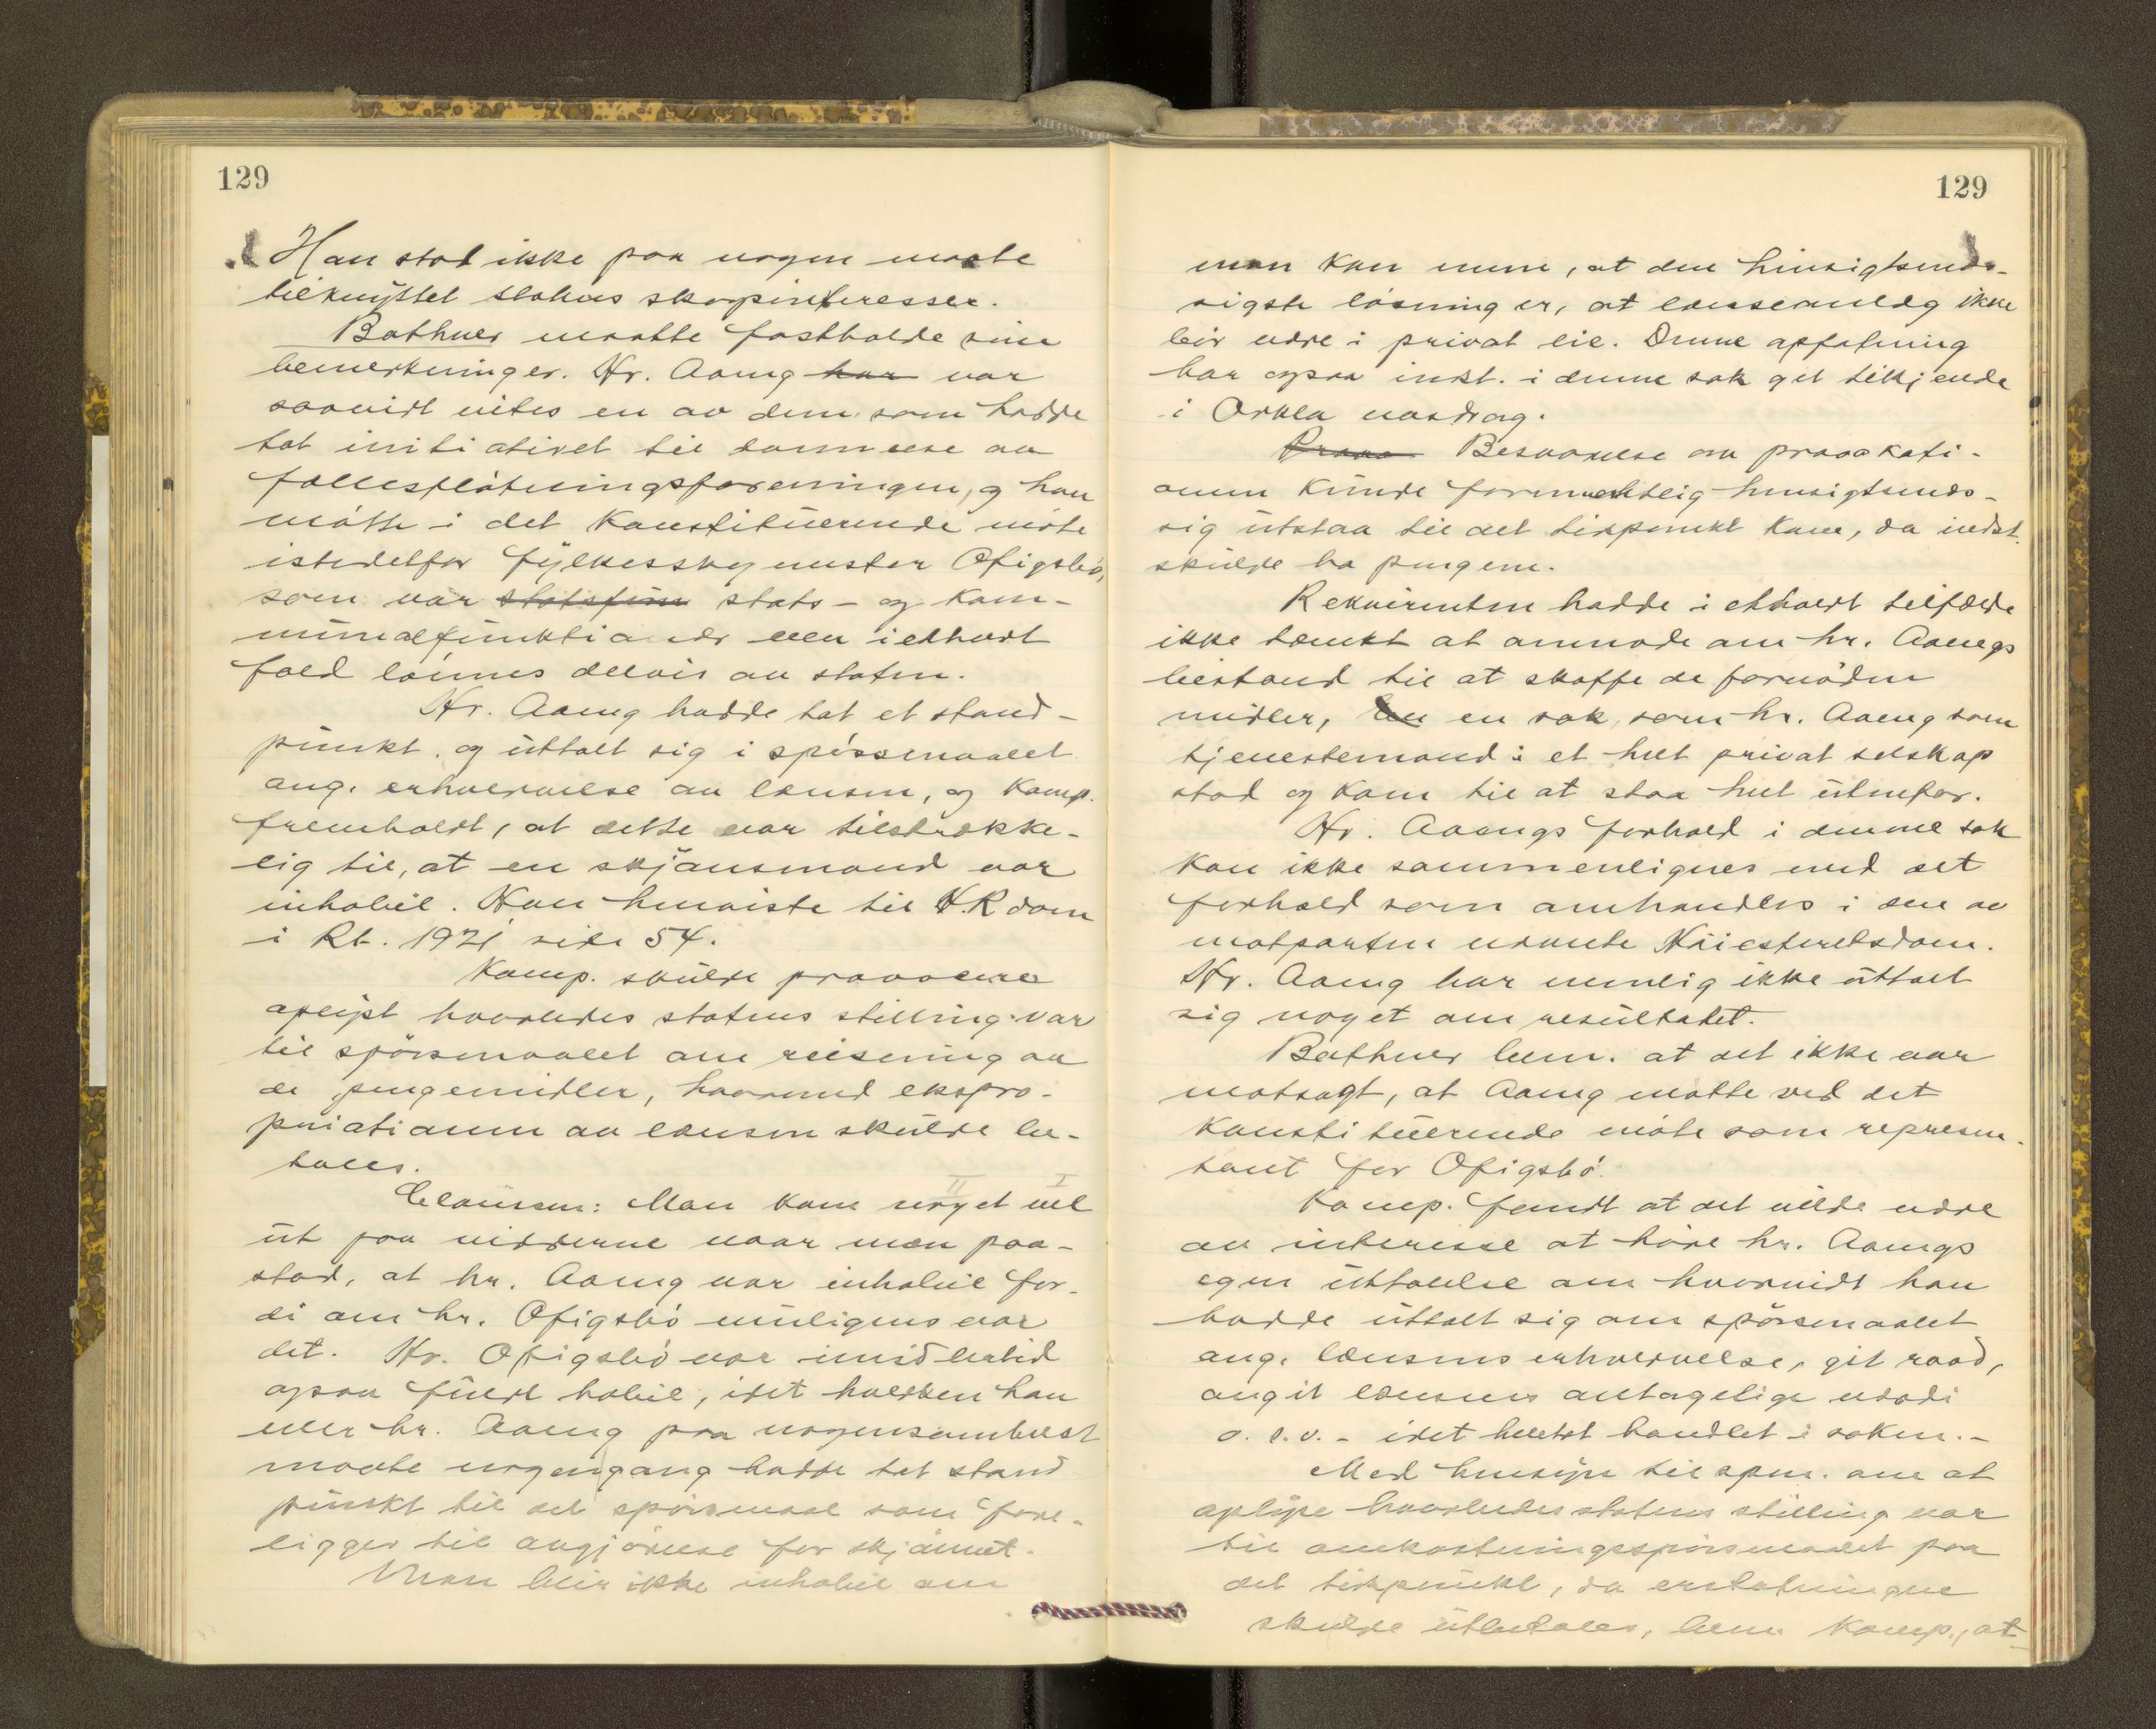 129
Han stod ikke paa nogen maate
tilknyttet statens skogsinteresser.
Bathner maatte fastholde sine
bemerkninger. Hr. Aaeng har var
saavidt vites en av dem som hadde
tat initiativet til dannelse av
fællesfløtningsforeningen, og han
møtte i det konstituerende møte
istedetfor fylkesskogmester Ofigsbø,
som var statsfun stats- og kom-
munalfunktionær eller i ethvert
fald lønnes delvis av staten.
Hr. Aaeng hadde tat et stand-
punkt og uttalt sig i spørsmaalet
ang. erhvervelse av lensen, og Kamp.
fremholdt, at dette var tilstrække-
lig til, at en skjønsmand var
inhabil. Han henviste til H.R dom
i Rt. 1921 side 54.
Kamp. skulde provocere
oplyst hvorledes statens stilling var
til spørsmaalet om reisning av
de pengemidler, hvormed ekspro-
priationen av lensen skulde be-
tales.
Claussen: Man kom noget vel
ut paa vidderne naar man paa-
stod, at hr. Aaeng var inhabil for-
di om hr. Ofigsbø muligens var
det. Hr. Ofigsbø var imidlertid
ogsaa fuldt habil, idet hverken han
eller hr. Aaeng paa nogensomhelst
maate nogengang hadde tat stand
punkt til det spørsmaal som fore-
ligger til avgjørelse for skjønnet.
Man blir ikke inhabil om
129
man kun mene, at den hensigtsmæs-
sigste løsning er, at lenseanlæg ikke
bør være i privat eie. Denne opfatning
har ogsaa inst. i denne sak git tilkjende
i Orkla vasdrag.
Prova Besvarelse om provokati-
onen kunde formentlig hensigtsmæs-
sig utstaa til det tidspunkt kom, da indst.
skulde ha pengene.
Rekvirenten hadde i ethvert tilfælde
ikke tænkt at anmode om hr. Aaengs
bistand til at skaffe de fornødne
midler, en sak, som hr. Aaeng som
tjenestemand i et helt privat selskap
stod og kom til at staa helt utenfor.
Hr. Aaengs forhold i denne sak
kan ikke sammenlignes med det
forhold som omhandles i den av
motparten nævnte Høiesteretsdom.
Hr. Aaeng har nemlig ikke uttalt
sig noget om resultatet.
Bathner bem. at det ikke var
motsagt, at Aaeng møtte ved det
konstituerende møte som represen-
tant for Ofigsbø.
Kamp. fandt at det vilde være
av interesse at høre hr. Aaengs
egen uttalelse om hvorvidt han
hadde uttalt sig om spørsmaalet
ang. lensens erhvervelse, git raad,
angit lensens antagelige værdi
o. s. v. - idet heletat handlet i saken. -
Med hensyn til spm. om at
oplyse hvorledes statens stilling var
til omkostningsspørsmaalet paa
det tidspunkt, da erstatningene
skulde utbetales, bem. Kamp., at